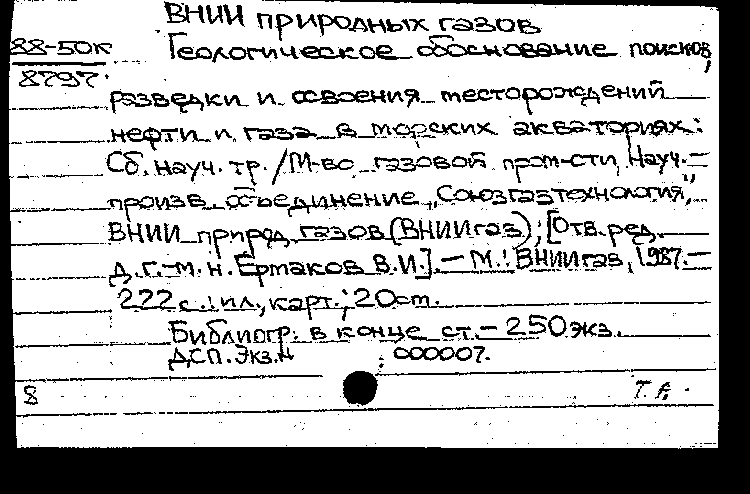 ВНИИ природных газов
88-50к Геологическое обоснование поисков,
8797
разведки и освоения месторождений
нефти и газа в морских акваториях:
Сб. науч. тр. / М-во газовой пром-сти, Науч.-
произв. объединение "Союзгазтехнология",
ВНИИ природ. газов (ВНИИгаз); [Отв. ред.
д.г.-м.н. Ермаков В.И.]. - М.: ВНИИгаз, 1987. -
222 с.: ил., карт.; 20 см.
Библиогр. в конце ст. - 250 экз.
ДСП. Экз. N : 000007.
8 Т. А.